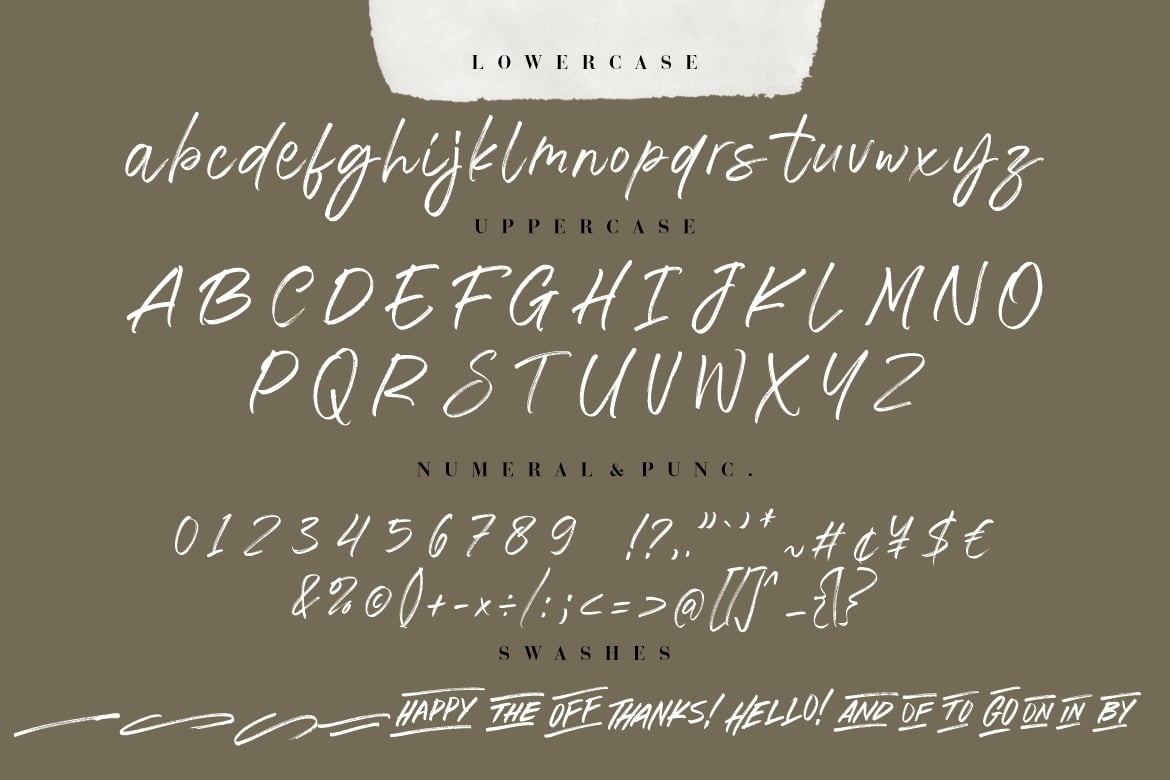 LOWERCASE
abcdefghijklmnopqrstuvwxyz
UPPERCASE
ABCDEFGHIJKLMNO
PQRSTUVWXYZ
NUMERAL & PUNC.
0123456789 !?,.”`’*~#¢¥$€
&%©()+-x÷/:;<=>@[[]^_{[}?
SWASHES
HAPPY THE OFF THANKS! HELLO! AND OF TO GO ON IN BY